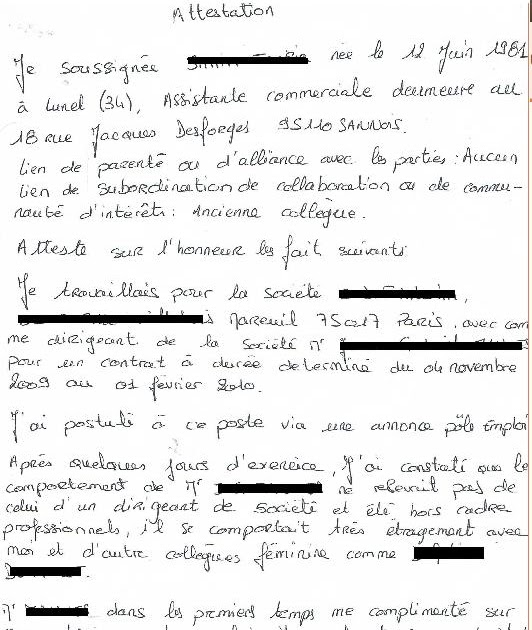 Attestation
Je soussignée née le 12 Juin 1981
à Lunel (34), Assistante commerciale demeure au
18 rue Jacques Desforges 95110 SANNOIS.
lien de parenté ou d'alliance avec les parties : Aucun
lien de subordination de collaboration ou de commu-
nauté d'intérêts : Ancienne collègue.
Atteste sur l'honneur les fait suivants
Je travaillais pour la société ,
Mareuil 75017 Paris, avec com
me dirigeant de la société Mr
pour un contrat à durée determiné du 04 novembre
2009 au 01 février 2010.
J'ai postulé à ce poste via une annonce pôle Emploi
Après quelques jours d'exercice, J'ai constaté que le
comportement de Mr ne relevait pas de
celui d'un dirigeant de société et été hors cadre
professionnels, il se comportait très étragement avec
moi et d'autre collègues féminine comme
.
Mr dans les premiers temps me complimenté sur